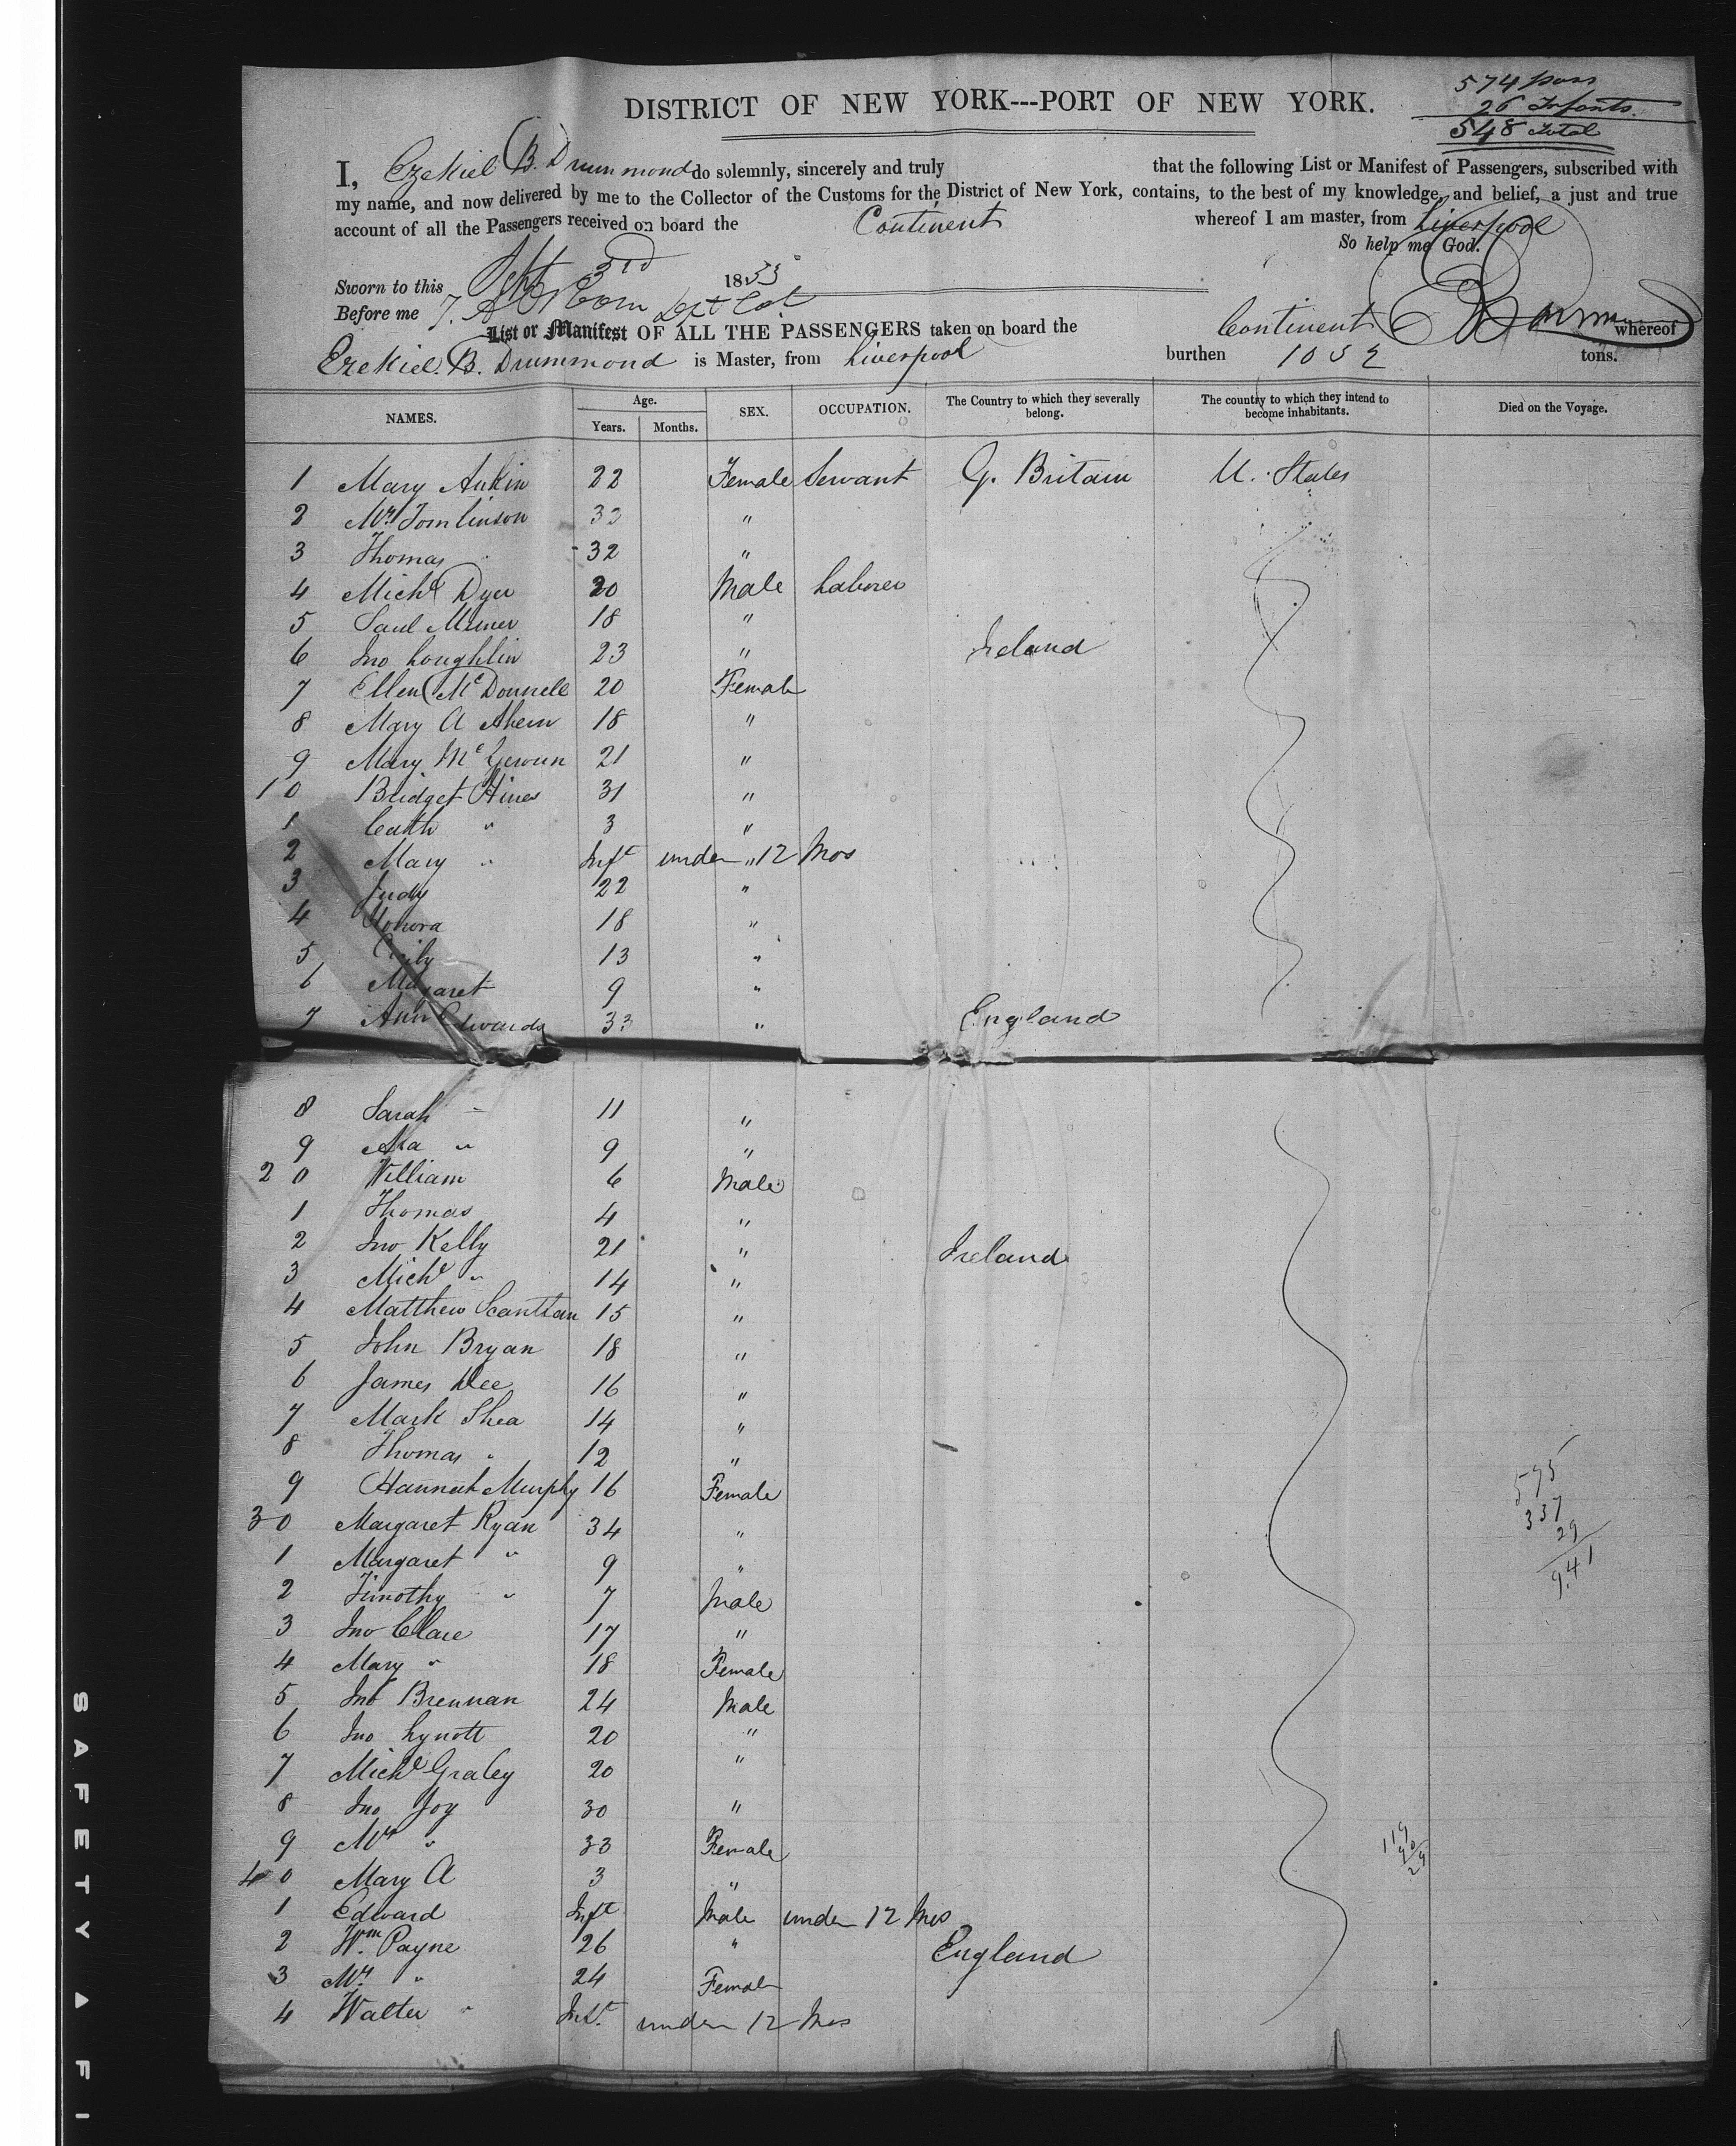 574 pass
26 Infants
548 Total
DISTRICT OF NEW YORK---PORT OF NEW YORK.
I, Ezekiel B. Drummond do solemnly, sincerely and truly that the following List or Manifest of Passengers, subscribed with
my name, and now delivered by me to the Collector of the Customs for the District of New York, contains, to the best of my knowledge and belief, a just and true
account of all the Passengers received on board the Continent whereof I am master, from Liverpool
So help me God.
Sworn to this Sept 3rd 1853
Before me
List or Manifest OF ALL THE PASSENGERS taken on board the Continent whereof
Ezekiel B. Drummond is Master, from Liverpool burthen tons.
NAMES. Age. Years. Months. SEX. OCCUPATION. The Country to which they severally belong. The country to which they intend to become inhabitants. Died on the Voyage.
1 Mary 22 Female Servant G. Britain U. States
2 Mrs Tomlinson 33 "
3 Thomas " 32 "
4 Michl Dyer 20 Male Laborer
5 18 "
6 Jno Loughlin 23 " Ireland
7 Ellen McDonnell 20 Female
8 Mary A Ahern 18 "
9 Mary 21 "
10 Bridget Hines 31 "
1 Cath " 3 "
2 Mary " Inft under " 12 Mos
3 Judy 22 "
4 Honora 18 "
5 13 "
6 Margaret 9 "
7 Ann Edwards 33 " England
8 Sarah " 11 "
9 " 9 "
20 William 6 Male
1 Thomas 4 "
2 Jno Kelly 21 " Ireland
3 Michl " 14 "
4 Matthew 15 "
5 John Bryan 18 "
6 James Dee 16 "
7 Mark Shea 14 "
8 Thomas " 12 "
9 Hannah Murphy 16 Female
30 Margaret Ryan 34 "
1 Margaret " 9 "
2 Timothy " 7 Male
3 Jno Clare 17 "
4 Mary " 18 Female
5 Jno Brennan 24 Male
6 Jno Lynott 20 "
7 Michl Graley 20 "
8 Jno Joy 30 "
9 Mrs " 33 Female
40 Mary A 3 "
1 Edward Inft Male under 12 Mos
2 Wm Payne 26 " England
3 Mrs " 24 Female
4 Walter " Inft. under 12 Mos
575
337
29
941
SAFETY FI